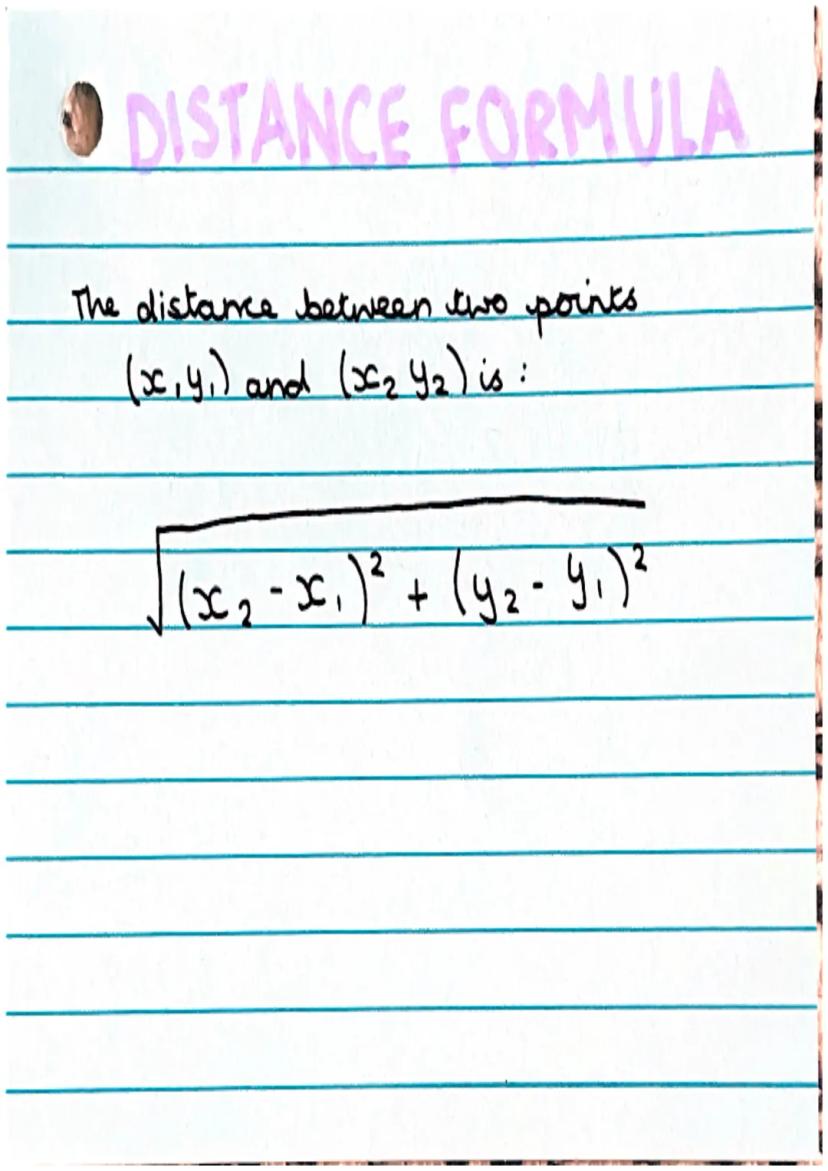 DISTANCE FORMULA
The distance between two points
(x₁y₁) and (x₂ y₂) is:
√(x₂ - x₁)² + (y₂ - y₁)²